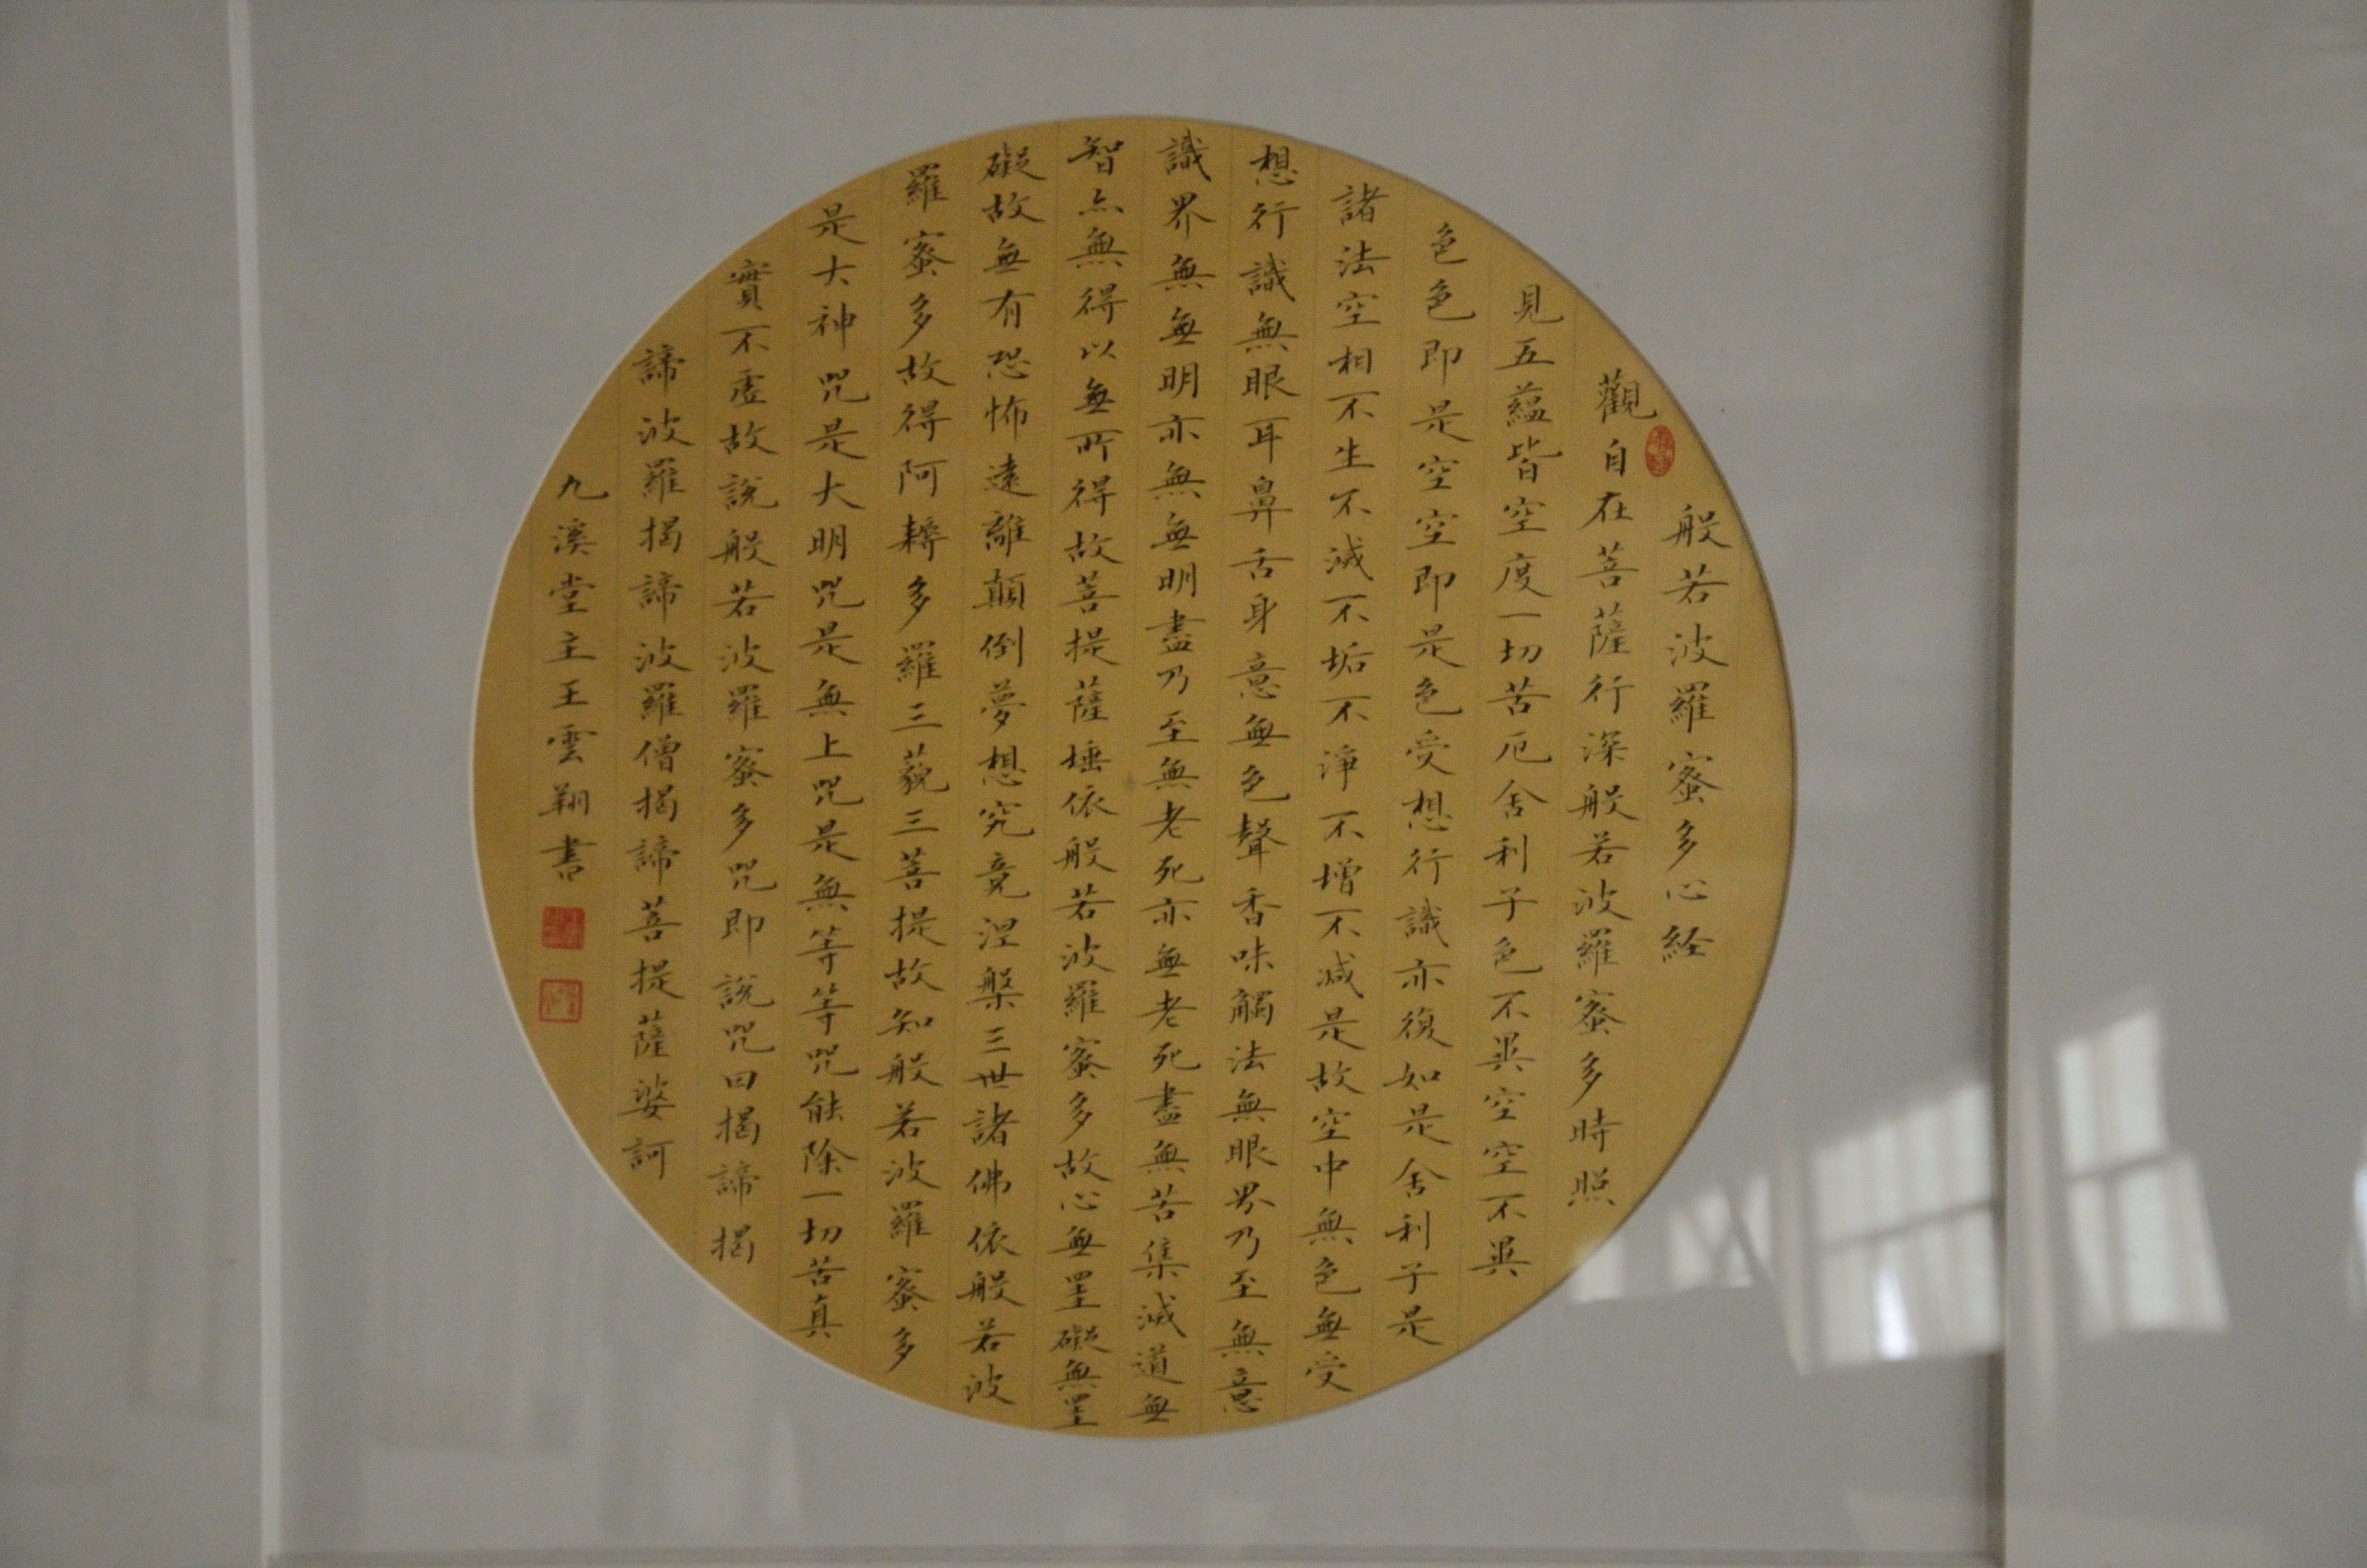 般若波羅蜜多心経
觀自在菩薩行深般若波羅蜜多時照
見五蘊皆空度一切苦厄舍利子色不異空空不異
色色即是空空即是色受想行識亦復如是舍利子是
諸法空相不生不滅不垢不淨不增不減是故空中無色無受
想行識無眼耳鼻舌身意無色聲香味觸法無眼界乃至無意
識界無無明亦無無明盡乃至無老死亦無老死盡無苦集滅道無
智亦無得以無所得故菩提薩埵依般若波羅蜜多故心無罣礙無罣
礙故無有恐怖遠離顛倒夢想究竟涅槃三世諸佛依般若波
羅蜜多故得阿耨多羅三藐三菩提故知般若波羅蜜多
是大神咒是大明咒是無上咒是無等等咒能除一切苦真
實不虛故說般若波羅蜜多咒即說咒曰揭諦揭
諦波羅揭諦波羅僧揭諦菩提薩婆訶
九溪堂主王雲翔書